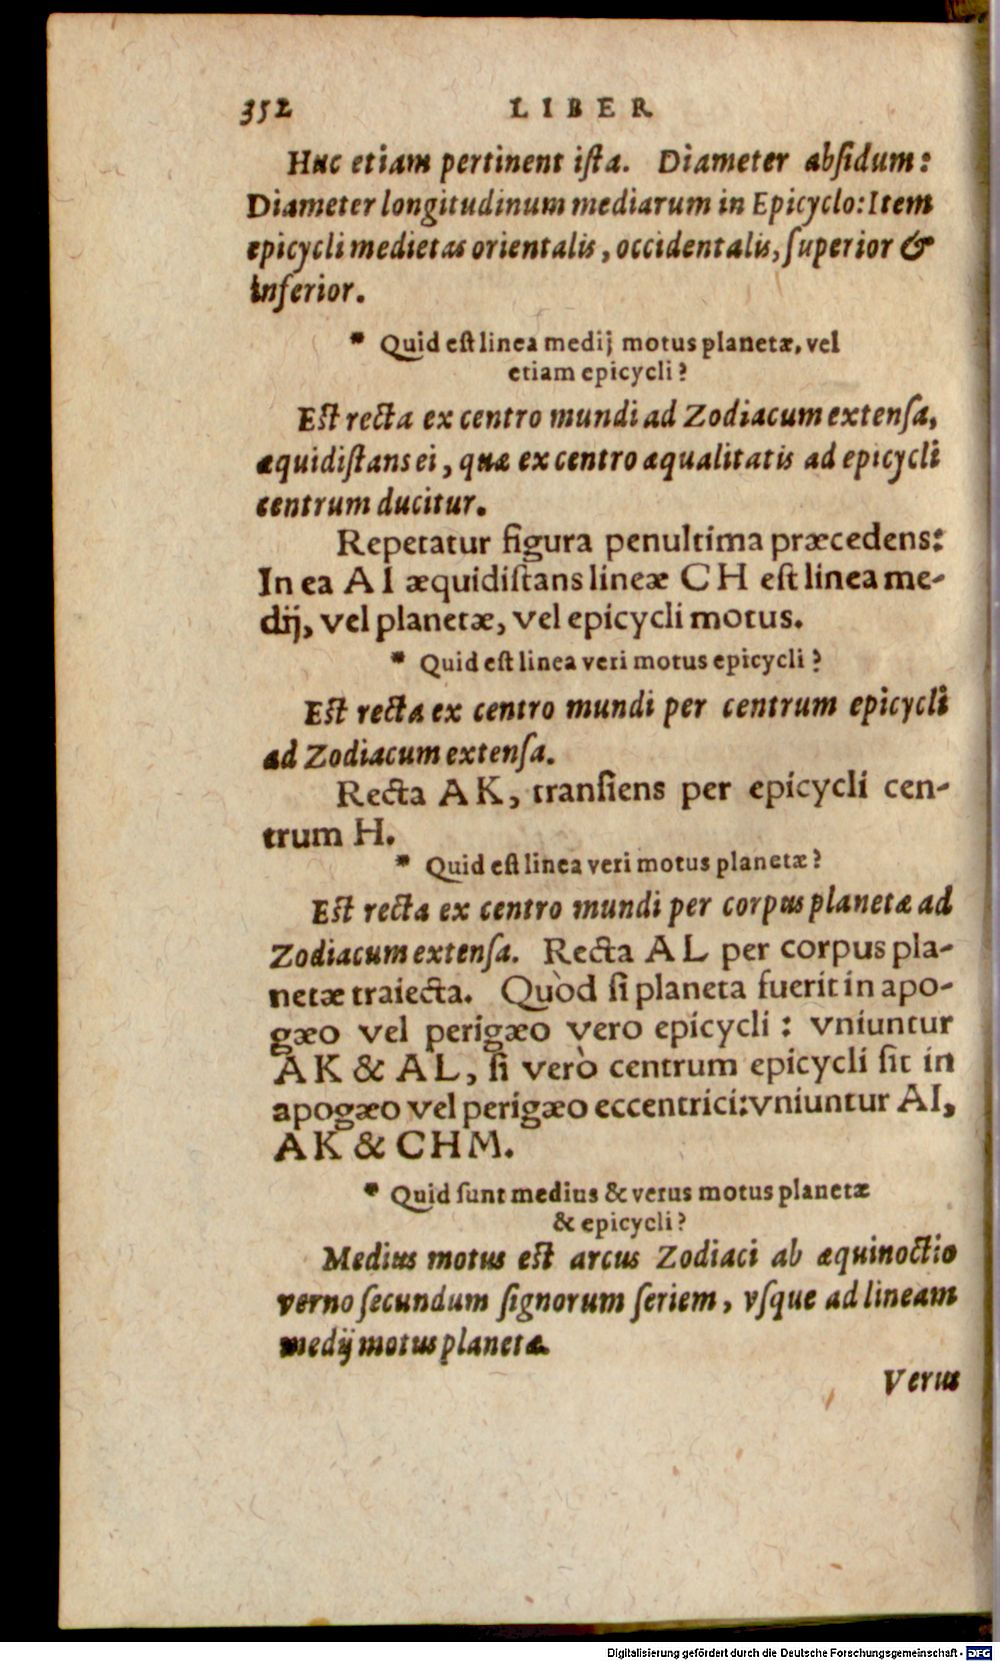 352 LIBER
Huc etiam pertinent iſta. Diameter abſidum:
Diameter longitudinum mediarum in Epicyclo: Item
epicycli medietas orientalis, occidentalis, ſuperior &
inferior.
* Quid eſt linea medij motus planetæ, vel
etiam epicycli?
Eſt recta ex centro mundi ad Zodiacum extenſa,
æquidiſtans ei, quæ ex centro æqualitatis ad epicycli
centrum ducitur.
Repetatur figura penultima præcedens:
In ea A I æquidiſtans lineæ C H eſt linea me-
dij, vel planetæ, vel epicycli motus.
* Quid eſt linea veri motus epicycli?
Eſt recta ex centro mundi per centrum epicycli
ad Zodiacum extenſa.
Recta A K, tranſiens per epicycli cen-
trum H.
* Quid eſt linea veri motus planetæ?
Eſt recta ex centro mundi per corpus planetæ ad
Zodiacum extenſa. Recta A L per corpus pla-
netæ traiecta. Quòd ſi planeta fuerit in apo-
gæo vel perigæo vero epicycli: vniuntur
A K & A L, ſi verò centrum epicycli ſit in
apogæo vel perigæo eccentrici: vniuntur A I,
A K & C H M.
* Quid ſunt medius & verus motus planetæ
& epicycli?
Medius motus eſt arcus Zodiaci ab æquinoctio
verno ſecundum ſignorum ſeriem, vſque ad lineam
medij motus planetæ.
Verus
Digitalisierung gefördert durch die Deutsche Forschungsgemeinschaft - DFG